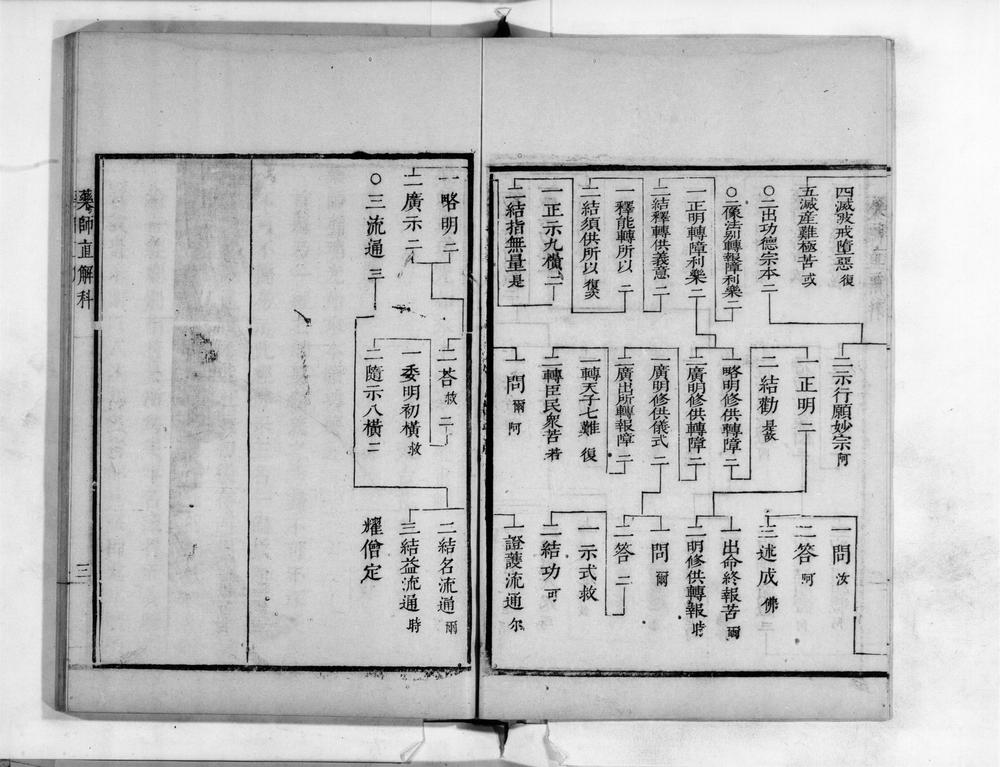 四滅破戒墮惡 復
五滅產難極苦 或
○二出功德宗本 二
○二像法別轉報障利樂 二
一正明轉障利樂 二
二結釋轉供義意 二
一釋能轉所以 二
二結須供所以 復次
一正示九橫 二
二結指無量 是
二示行願妙宗 阿
一正明 二
二結勸 是故
一略明修供轉障 二
二廣明修供轉障 二
一廣明修供儀式 二
二廣出所轉報障 二
一轉天子七難 復
二轉臣民衆苦 若
一問 爾 阿
一問 汝
二答 阿
三述成 佛
一出命終報苦 爾
二明修供轉報 時
一問 爾
二答 二
一示式 救
二結功 可
一證護流通 尔
一略明 二
二廣示 二
○三流通 三
二荅 救 二
一委明初橫 救
二隨示八橫 二
二結名流通 爾
三結益流通 時
耀僧定
藥師直解科
三